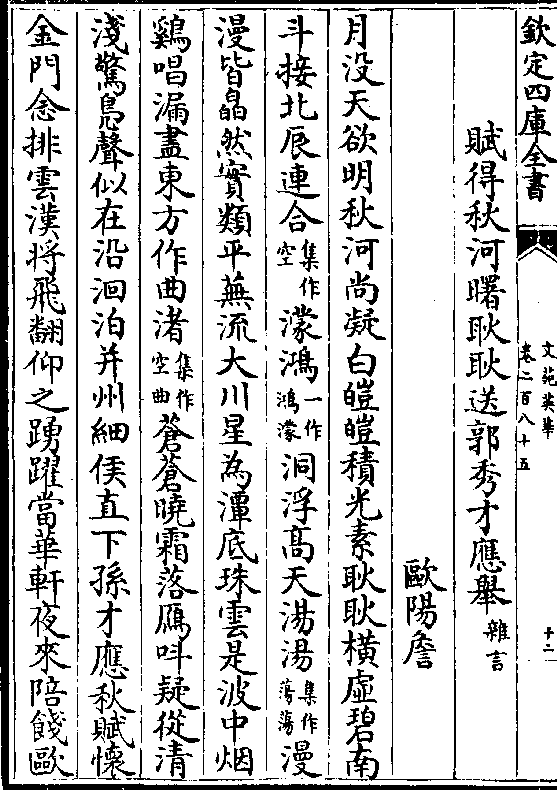 欽定四庫全書
文苑英華
卷二百八十五
十二
賦得秋河曙耿耿送郭秀才應舉雜言
歐陽詹
月没天欲明秋河尚凝白皚皚積光素耿耿横虚碧南
斗接北辰連合集作空濛鴻一作鴻濛洞浮髙天湯湯集作蕩蕩漫
漫皆皛然實類平蕪流大川星為潭底珠雲是波中烟
鷄唱漏盡東方作曲渚集作空曲蒼蒼曉霜落鴈呌疑從清
淺驚鳬聲似在沿洄泊并州細侯直下孫才應秋賦懷
金門念排雲漢將飛翻仰之踴躍當華軒夜來陪餞歐